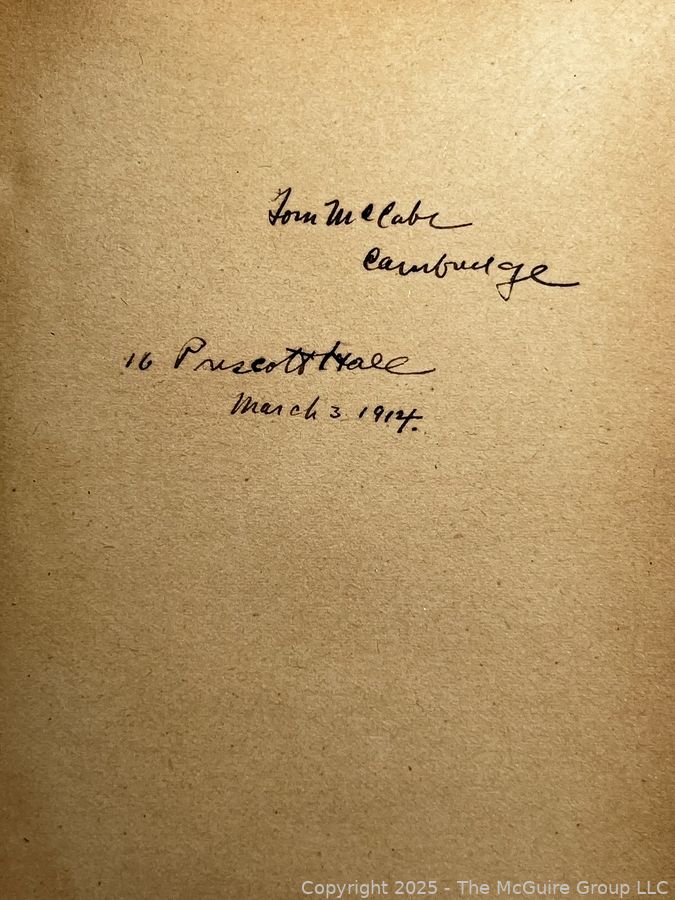 Tom McCabe
Cambridge
16 Prescott Hall
March 3 1914.
Copyright 2025 - The McGuire Group LLC